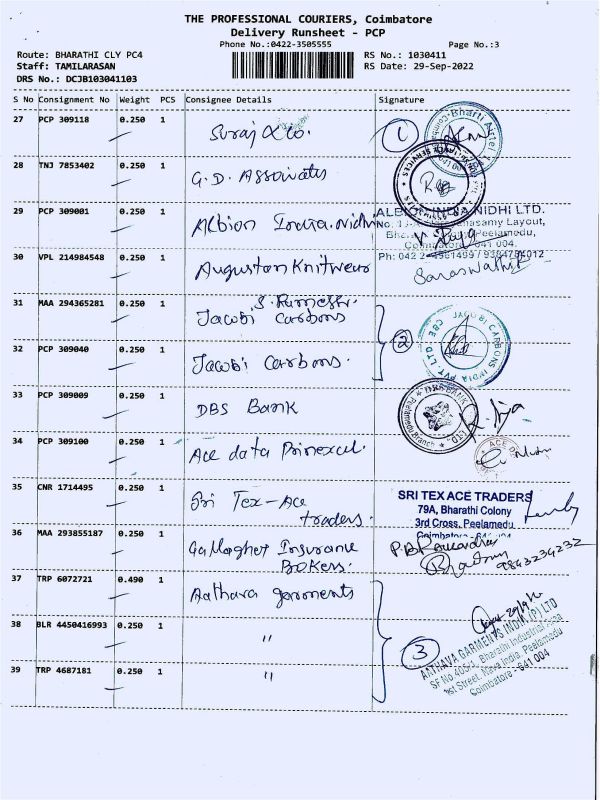 THE PROFESSIONAL COURIERS, Coimbatore
Delivery Runsheet - PCP
Phone No.:0422-3505555 Page No.:3
Route: BHARATHI CLY PC4 RS No.: 1030411
Staff: TAMILARASAN RS Date: 29-Sep-2022
DRS No.: DCJB103041103
S No Consignment No Weight PCS Consignee Details Signature
27 PCP 309118 0.250 1 Suraj & Co. 1 Bharti Airtel
28 TNJ 7853402 0.250 1 G.D. Associates
29 PCP 309001 0.250 1 Albion India Nidhi ALBION INDIA NIDHI LTD.
Layout,
Peelamedu,
Coimbatore 641 004.
30 VPL 214984548 0.250 1 Auguston Knitwear Saraswathi
S. Ramesh
31 MAA 294365281 0.250 1 Jacobi Carbons
2 JACOBI CARBONS INDIA PVT. LTD CBE
32 PCP 309040 0.250 1 Jacobi Carbons.
33 PCP 309009 0.250 1 DBS Bank DBS BANK LTD. Peelamedu Branch
34 PCP 309100 0.250 1 Ace data Prinexcel.
35 CNR 1714495 0.250 1 Sri Tex-Ace traders. SRI TEX ACE TRADERS
79A, Bharathi Colony
3rd Cross, Peelamedu
Coimbatore
36 MAA 293855187 0.250 1 Gallagher Insurance Brokers. 9843234232
37 TRP 6072721 0.490 1 Aathava garments
38 BLR 4450416993 0.250 1 "
3 AATHAVA GARMENTS INDIA (P) LTD
SF No 405/3, Bharathi Industrial Area
1st Street, Nava India, Peelamedu
Coimbatore - 641 004
39 TRP 4687181 0.250 1 "